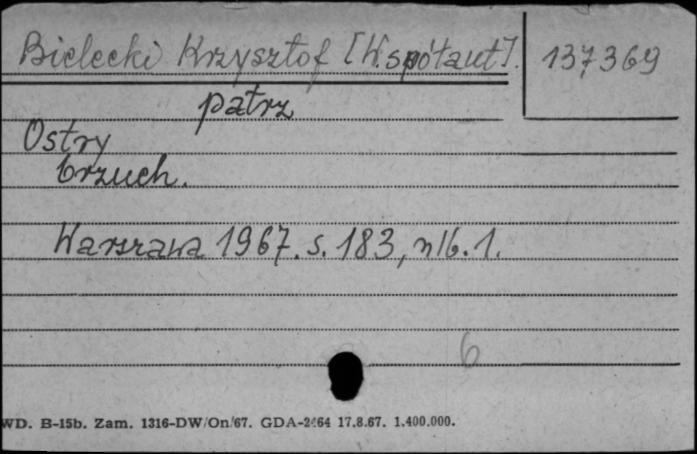 Bielecki Krzysztof [Współaut]. 137369
patrz
Ostry
brzuch.
Warszawa 1967. s. 183, nlb. 1.
6
WD. B-15b. Zam. 1316-DW/On/67. GDA-2464 17.8.67. 1.400.000.